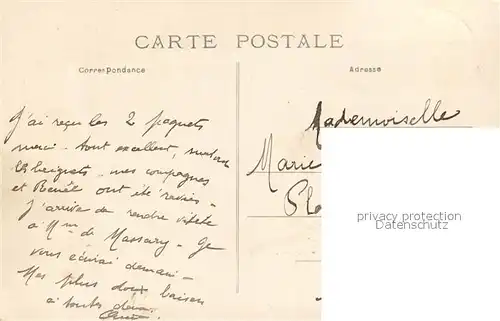 CARTE POSTALE
Correspondance
Adresse
J'ai reçu les 2 paquets
merci - tout excellent, surtout
les beignets - mes compagnes
et Renée ont été ravies -
J'arrive de rendre visite
à Mme de Massary - Je
vous écrirai demain -
Mes plus doux baisers
à toutes deux
Mademoiselle
Marie
privacy protection
Datenschutz